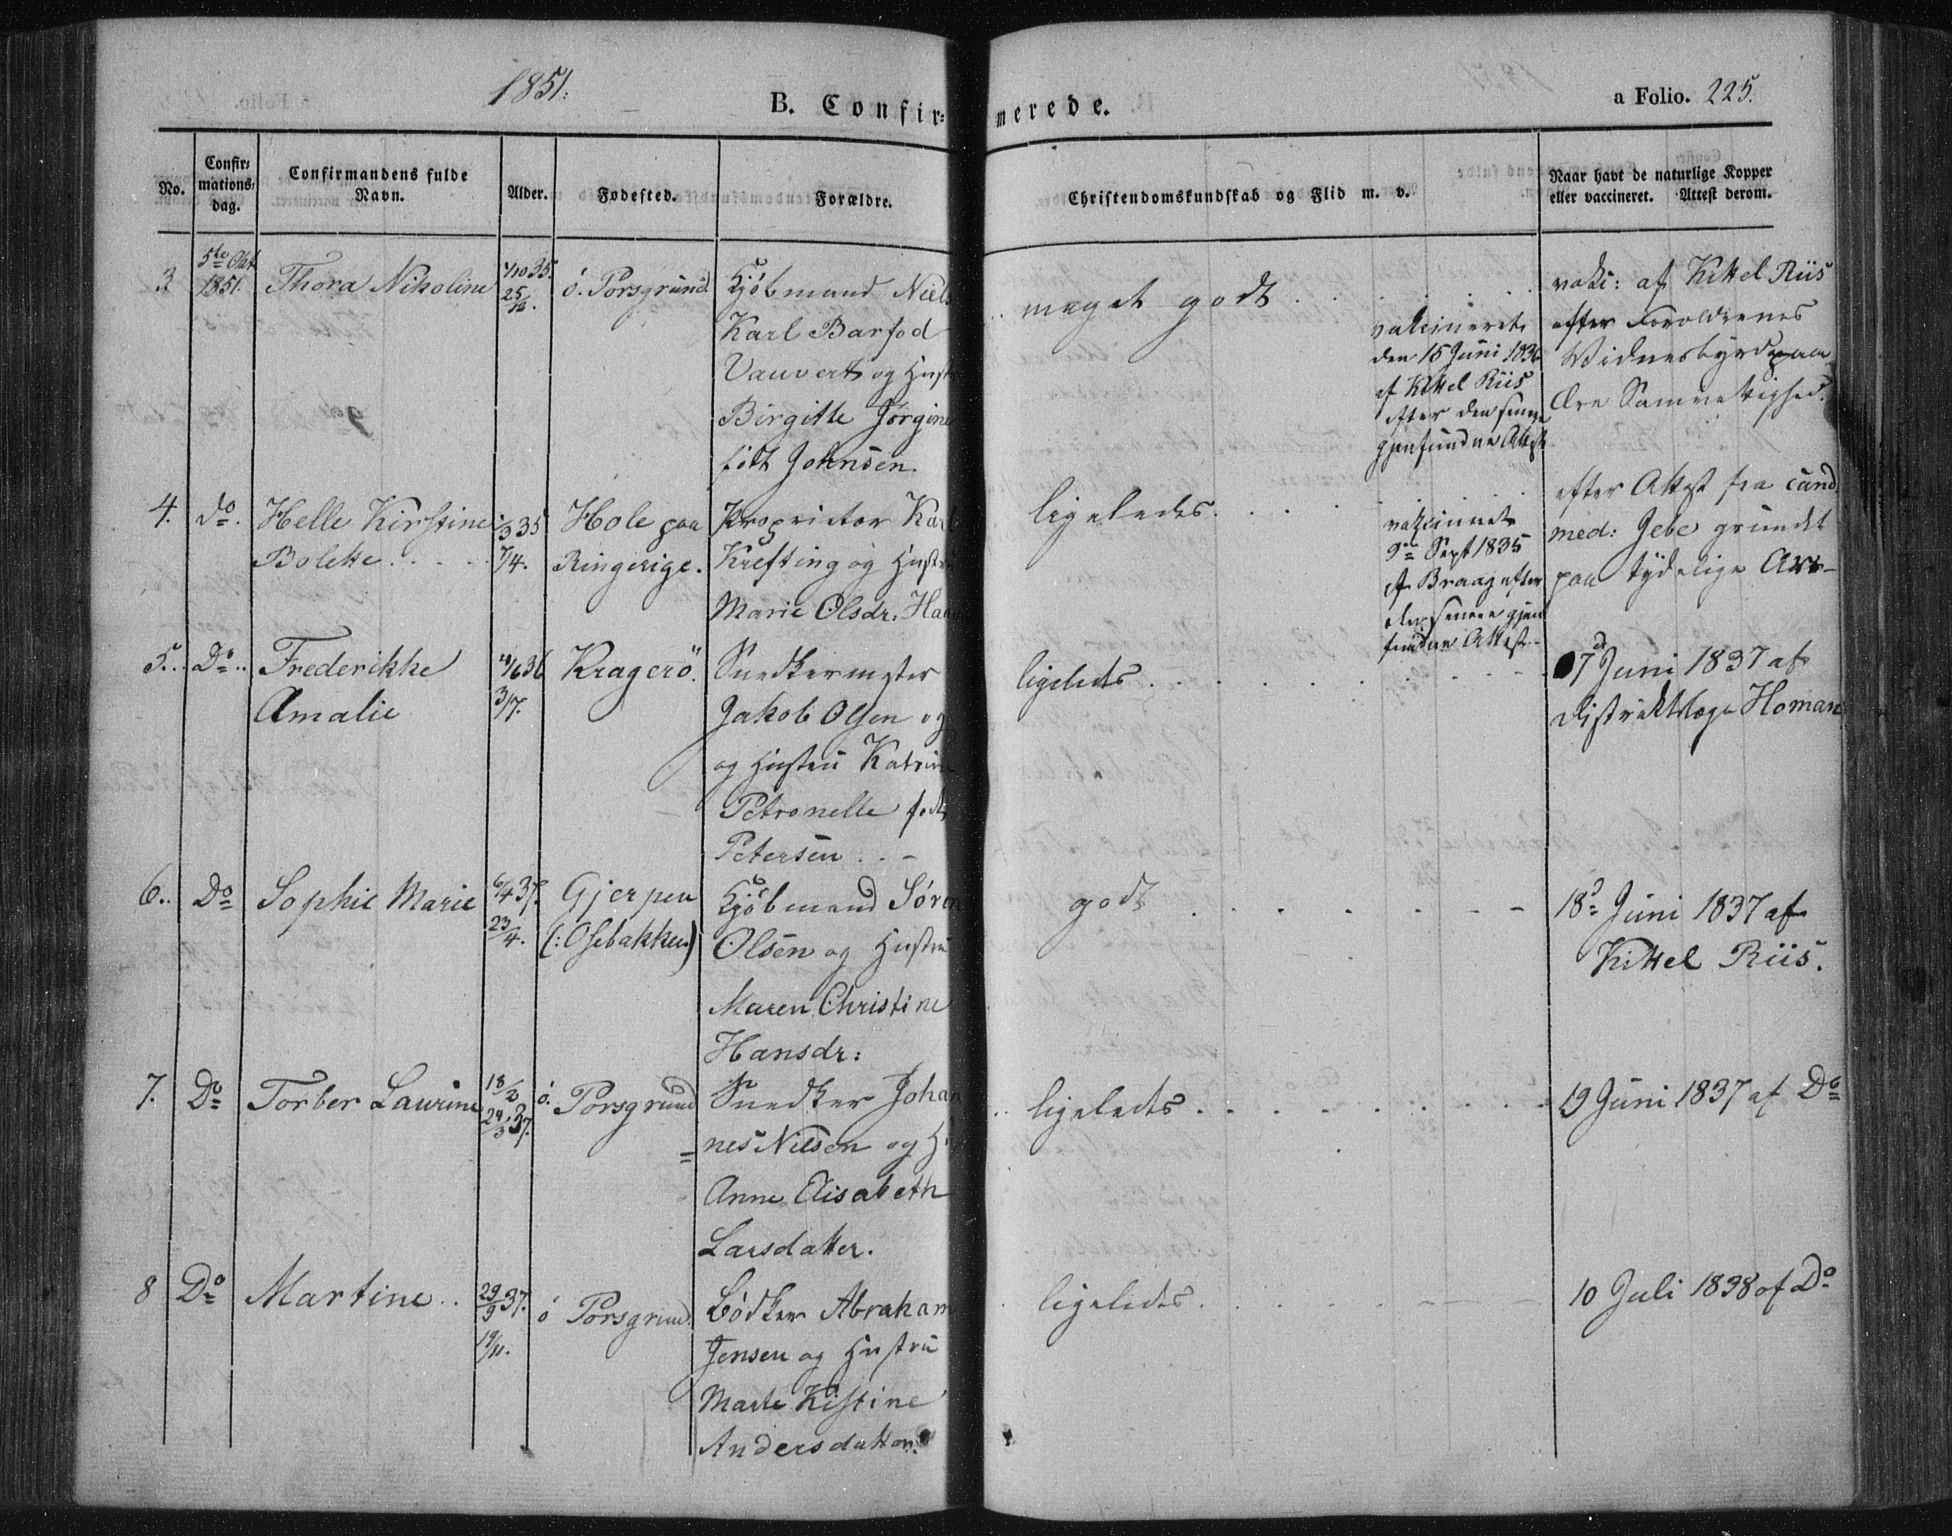 1851.
B. Confir=
merede.
a Folio. 225.
No.
Confir=
mations=
dag.
Confirmandens fulde
Navn.
Alder.
Fødested.
Forældre.
Christendomskundskab og Flid m. v.
Naar havt de naturlige Kopper
eller vaccineret. Attest derom.
3
5te Okt
1851.
Thora Nikoline
4/10 35.
25/12.
ö. Porsgrund
Kjöbmand Niels
Karl Barfod
Vauvert og Hustr
Birgitte Jørgine
født Johnsen.
meget godt . .
vakcineret
den 15 Juni 1836
af Kittel Riis
efter den senere
gjenfundne Attest
vakc: af Kittel Riis
efter Foroldrenes
Vidnesbyrd paa
Ære Samvetighed.
4.
do.
Helle Kirstine
Bolette . . . .
3 35
7/4.
Hole paa
Ringerige.
Proprietør Karl
Krefting og Hustru
Marie Olsdr. Haa
ligeledes. . . .
vakcineret
9de Sept 1835
af Braag efter
den senere gjen
fundne Attest.
efter Attest fra cand.
med: Jebe grundet
paa tydelige Arr-
5..
Do..
Frederikke
Amalie
/6 36
3/7.
Kragerö.
Snedkermester
Jakob Olsen og
og Hustru Katrine
Petronelle født
Petersen . . -
ligeledes . . . . . .
7d Juni 1837 af
Distriktslæge Homan
6..
Do
Sophie Marie
6/4 37.
23/4.
Gjerpen
(: Osebakken)
Kjöbmand Søren
Olsen og Hustru
Maren Christine
Hansdr:
godt . . . . . . - -
18d Juni 1837 af
Kittel Riis.
7.
Do
Torber Laurine
18/2
24/3 37.
ö. Porsgrund
Snedker Johan
=
nes Nilsen og H
Anne Elisabeth
Larsdatter.
ligeledes . . . . . . . .
19 Juni 1837 af Do
8
Do
Martine . .
29/9 37.
19/11.
ö Porsgrund.
Bødker Abraham
Jensen og Hustru
Marte Kistine
Andersdatter.
ligeledes . . . . . - -
10 Juli 1838 af Do